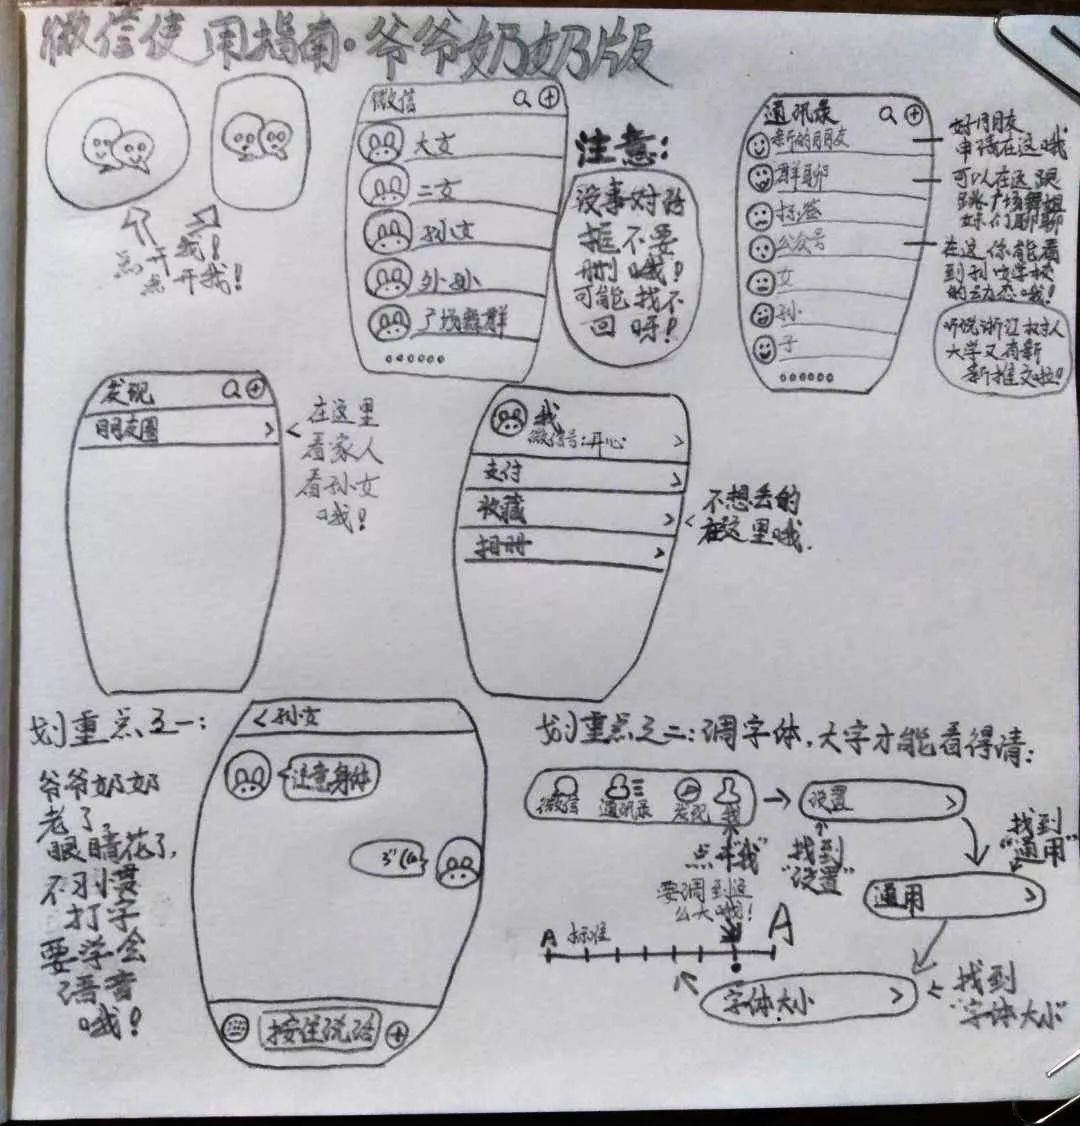 微信使用指南·爷爷奶奶版
点开我!
点开我!
微信
大女
二女
孙女
外孙
广场舞群
......
注意:
没事对话
框不要
删哦!
可能找不
回呀!
通讯录
新的朋友
群聊
标签
公众号
女
孙
子
......
好朋友
申请在这哦
可以在这跟
跳广场舞姐
妹们聊聊
在这你能看
到孙女学校
的动态哦!
听说浙江树人
大学又有新
新推文啦!
发现
朋友圈
在这里
看家人
看孙女
哦!
我
微信号:开心
支付
收藏
相册
不想丢的
在这里哦.
划重点之一:
爷爷奶奶
老了,
眼睛花了,
不习惯
打字
要学会
语音
哦!
<孙女
注意身体
3"
按住说话
划重点之二:调字体,大字才能看得清:
微信 通讯录 发现 我
设置
点开"我"
找到
"设置"
找到
"通用"
通用
要调到这
么大哦!
A 标准 A
字体大小
找到
"字体大小"